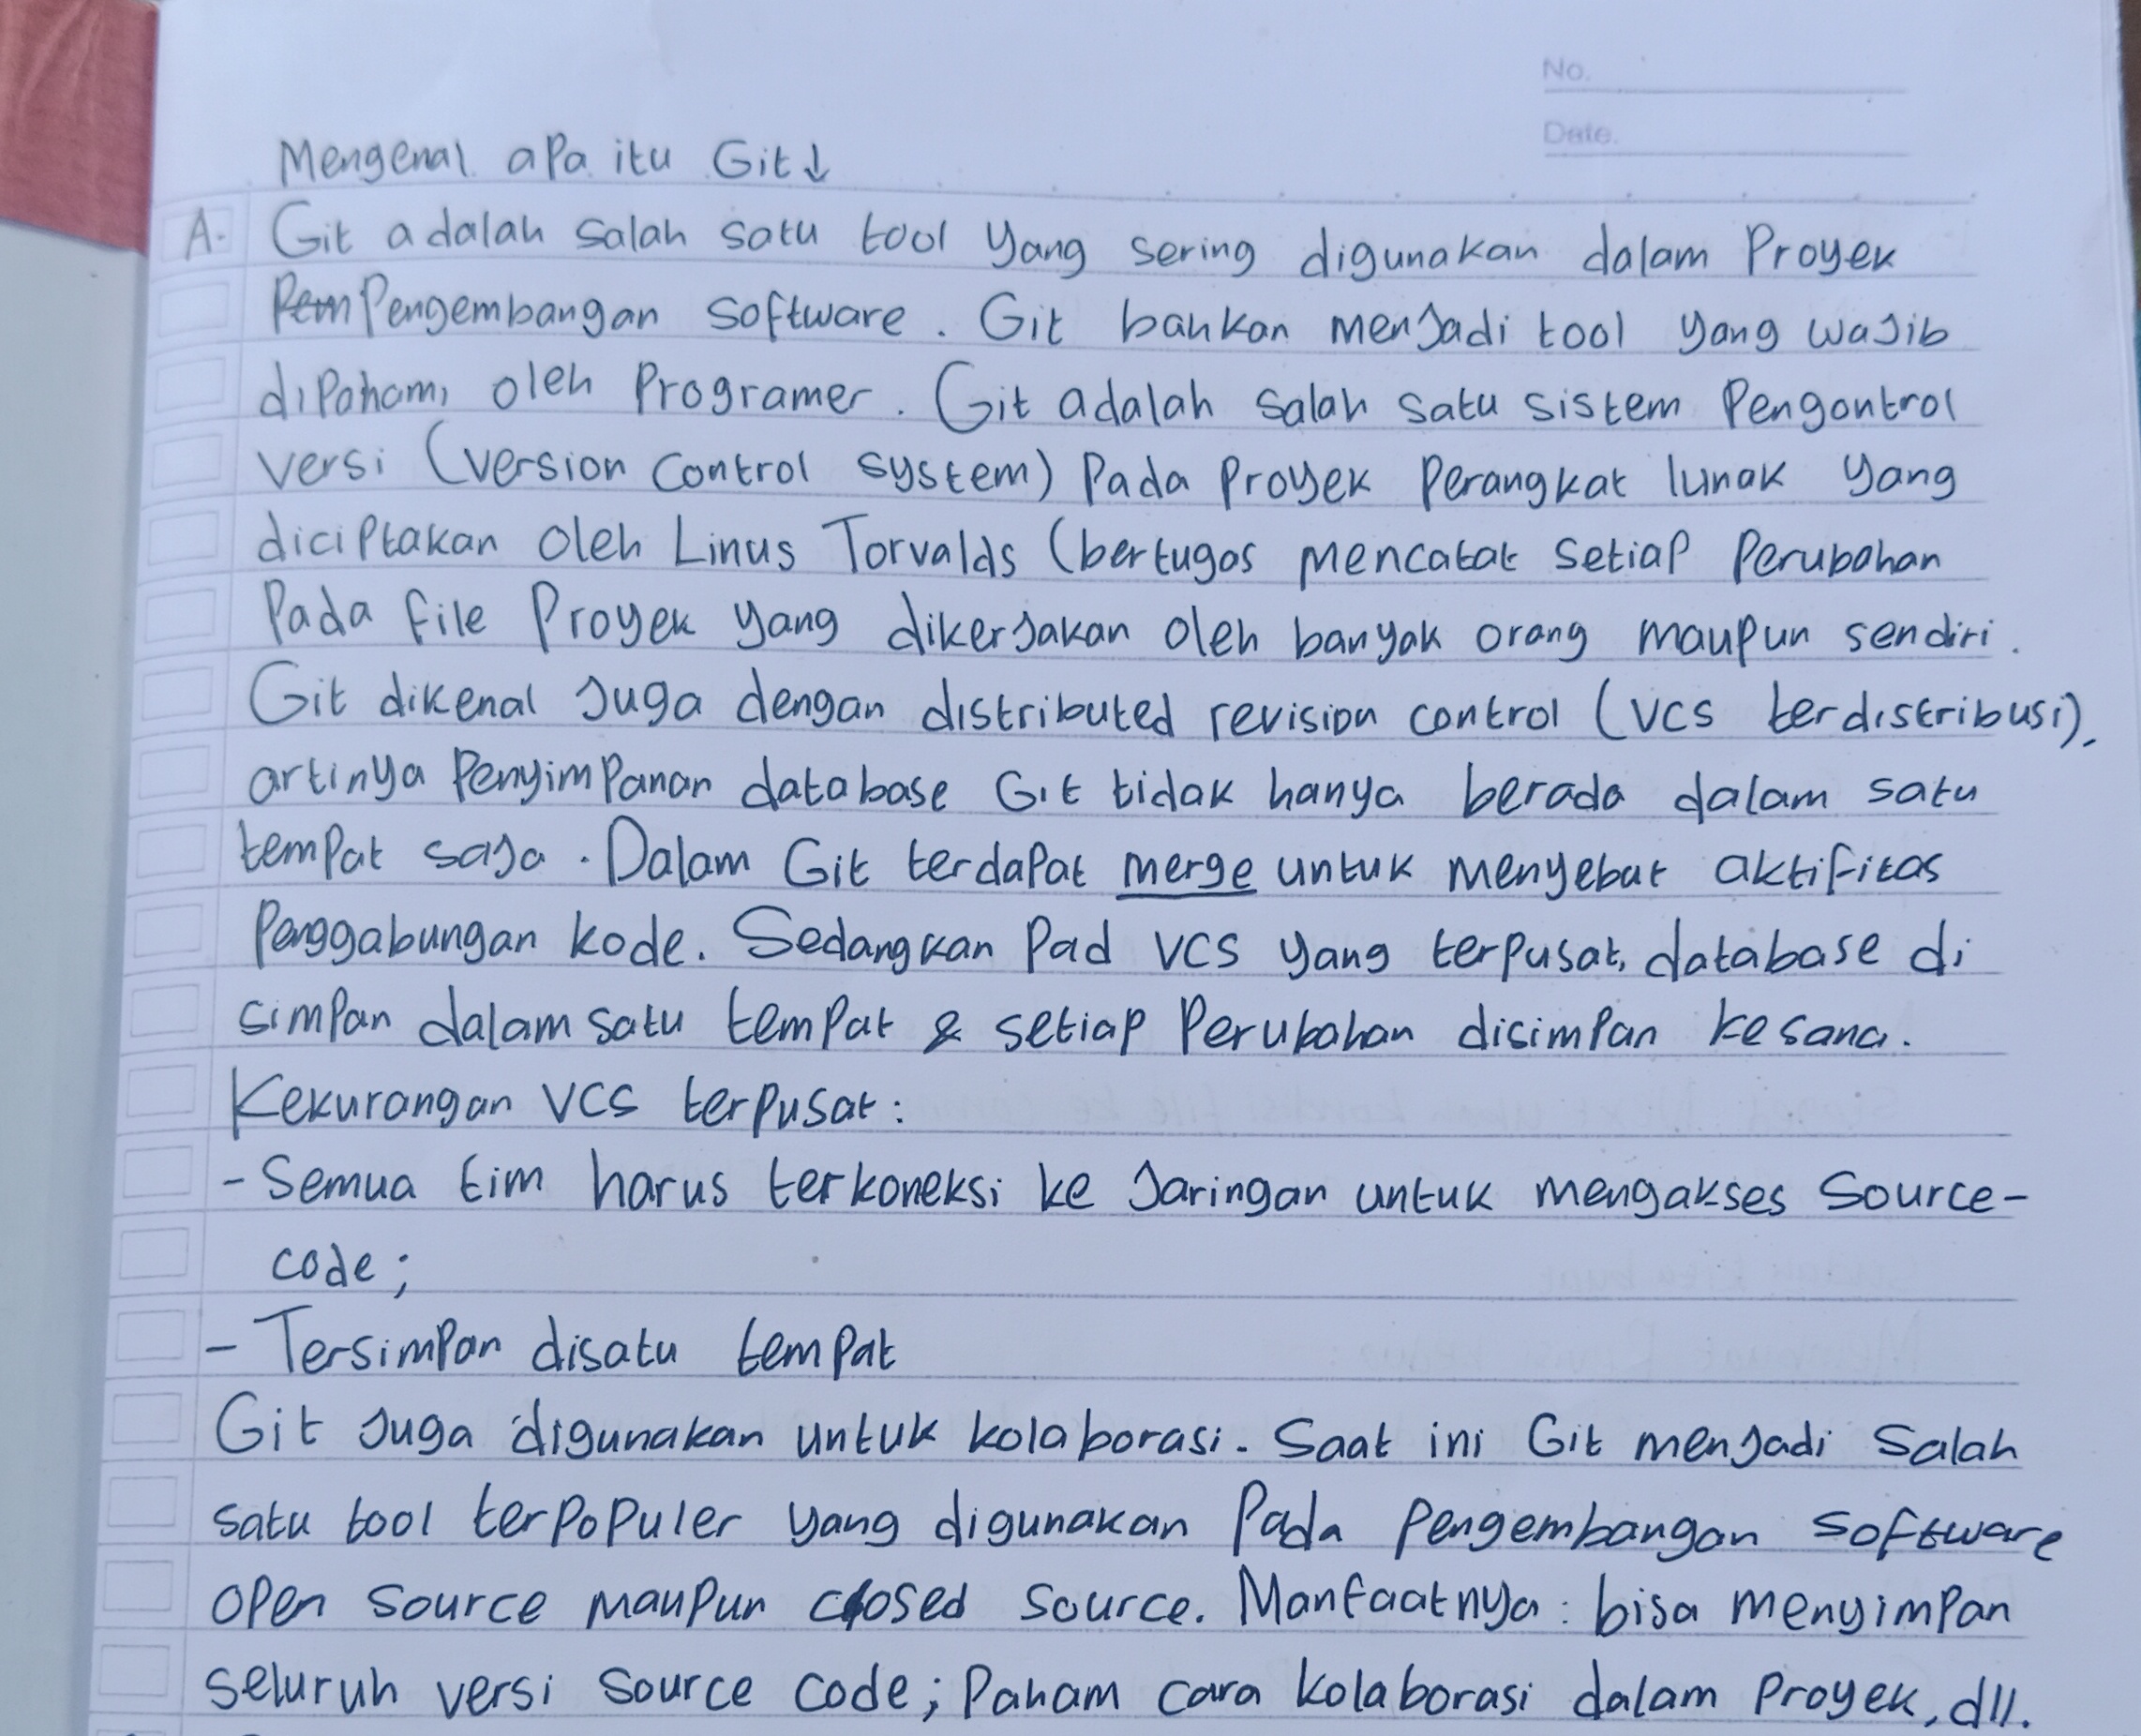 No.
Date.
Mengenal apa itu Git↓
A. Git adalah salah satu tool yang sering digunakan dalam Proyek
Pem Pengembangan software. Git bahkan menjadi tool yang wajib
dipahami oleh Programer. Git adalah salah satu sistem Pengontrol
versi (version control system) Pada Proyek Perangkat lunak yang
diciptakan oleh Linus Torvalds (bertugas mencatat setiap Perubahan
Pada file Proyek yang dikerjakan oleh banyak orang maupun sendiri.
Git dikenal juga dengan distributed revision control (VCS terdistribusi),
artinya Penyimpanan database Git tidak hanya berada dalam satu
tempat saja. Dalam Git terdapat merge untuk menyebut aktifitas
Penggabungan kode. Sedangkan Pad VCS yang terpusat, database di
simpan dalam satu tempat & setiap Perubahan disimpan kesana.
Kekurangan VCS terpusat:
- Semua tim harus terkoneksi ke jaringan untuk mengakses Source-
code;
- Tersimpan disatu tempat
Git juga digunakan untuk kolaborasi. Saat ini Git menjadi salah
satu tool terpopuler yang digunakan Pada Pengembangan software
open source maupun closed source. Manfaatnya: bisa menyimpan
seluruh versi source code; Paham cara kolaborasi dalam Proyek, dll.